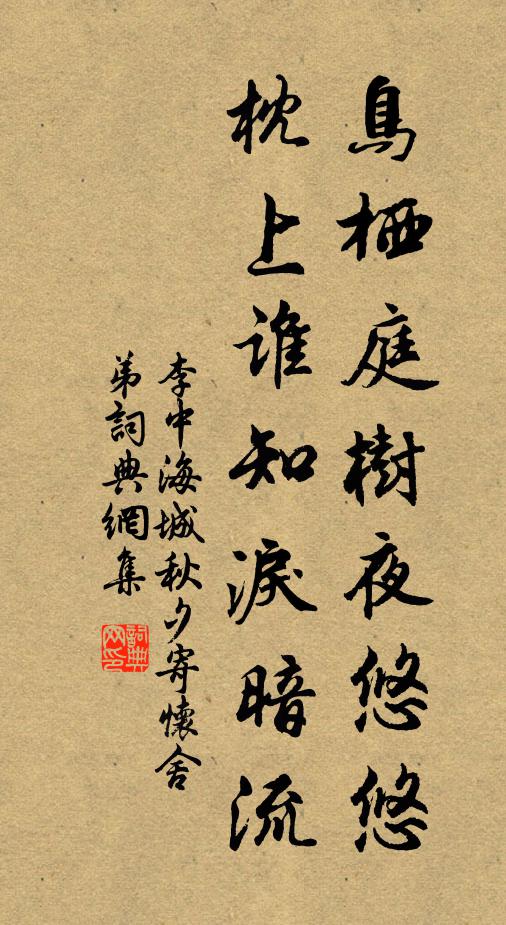 鳥栖庭樹夜悠悠
枕上誰知淚暗流
李中海城秋夕寄懷舍
弟詞典網集
詞典
网印